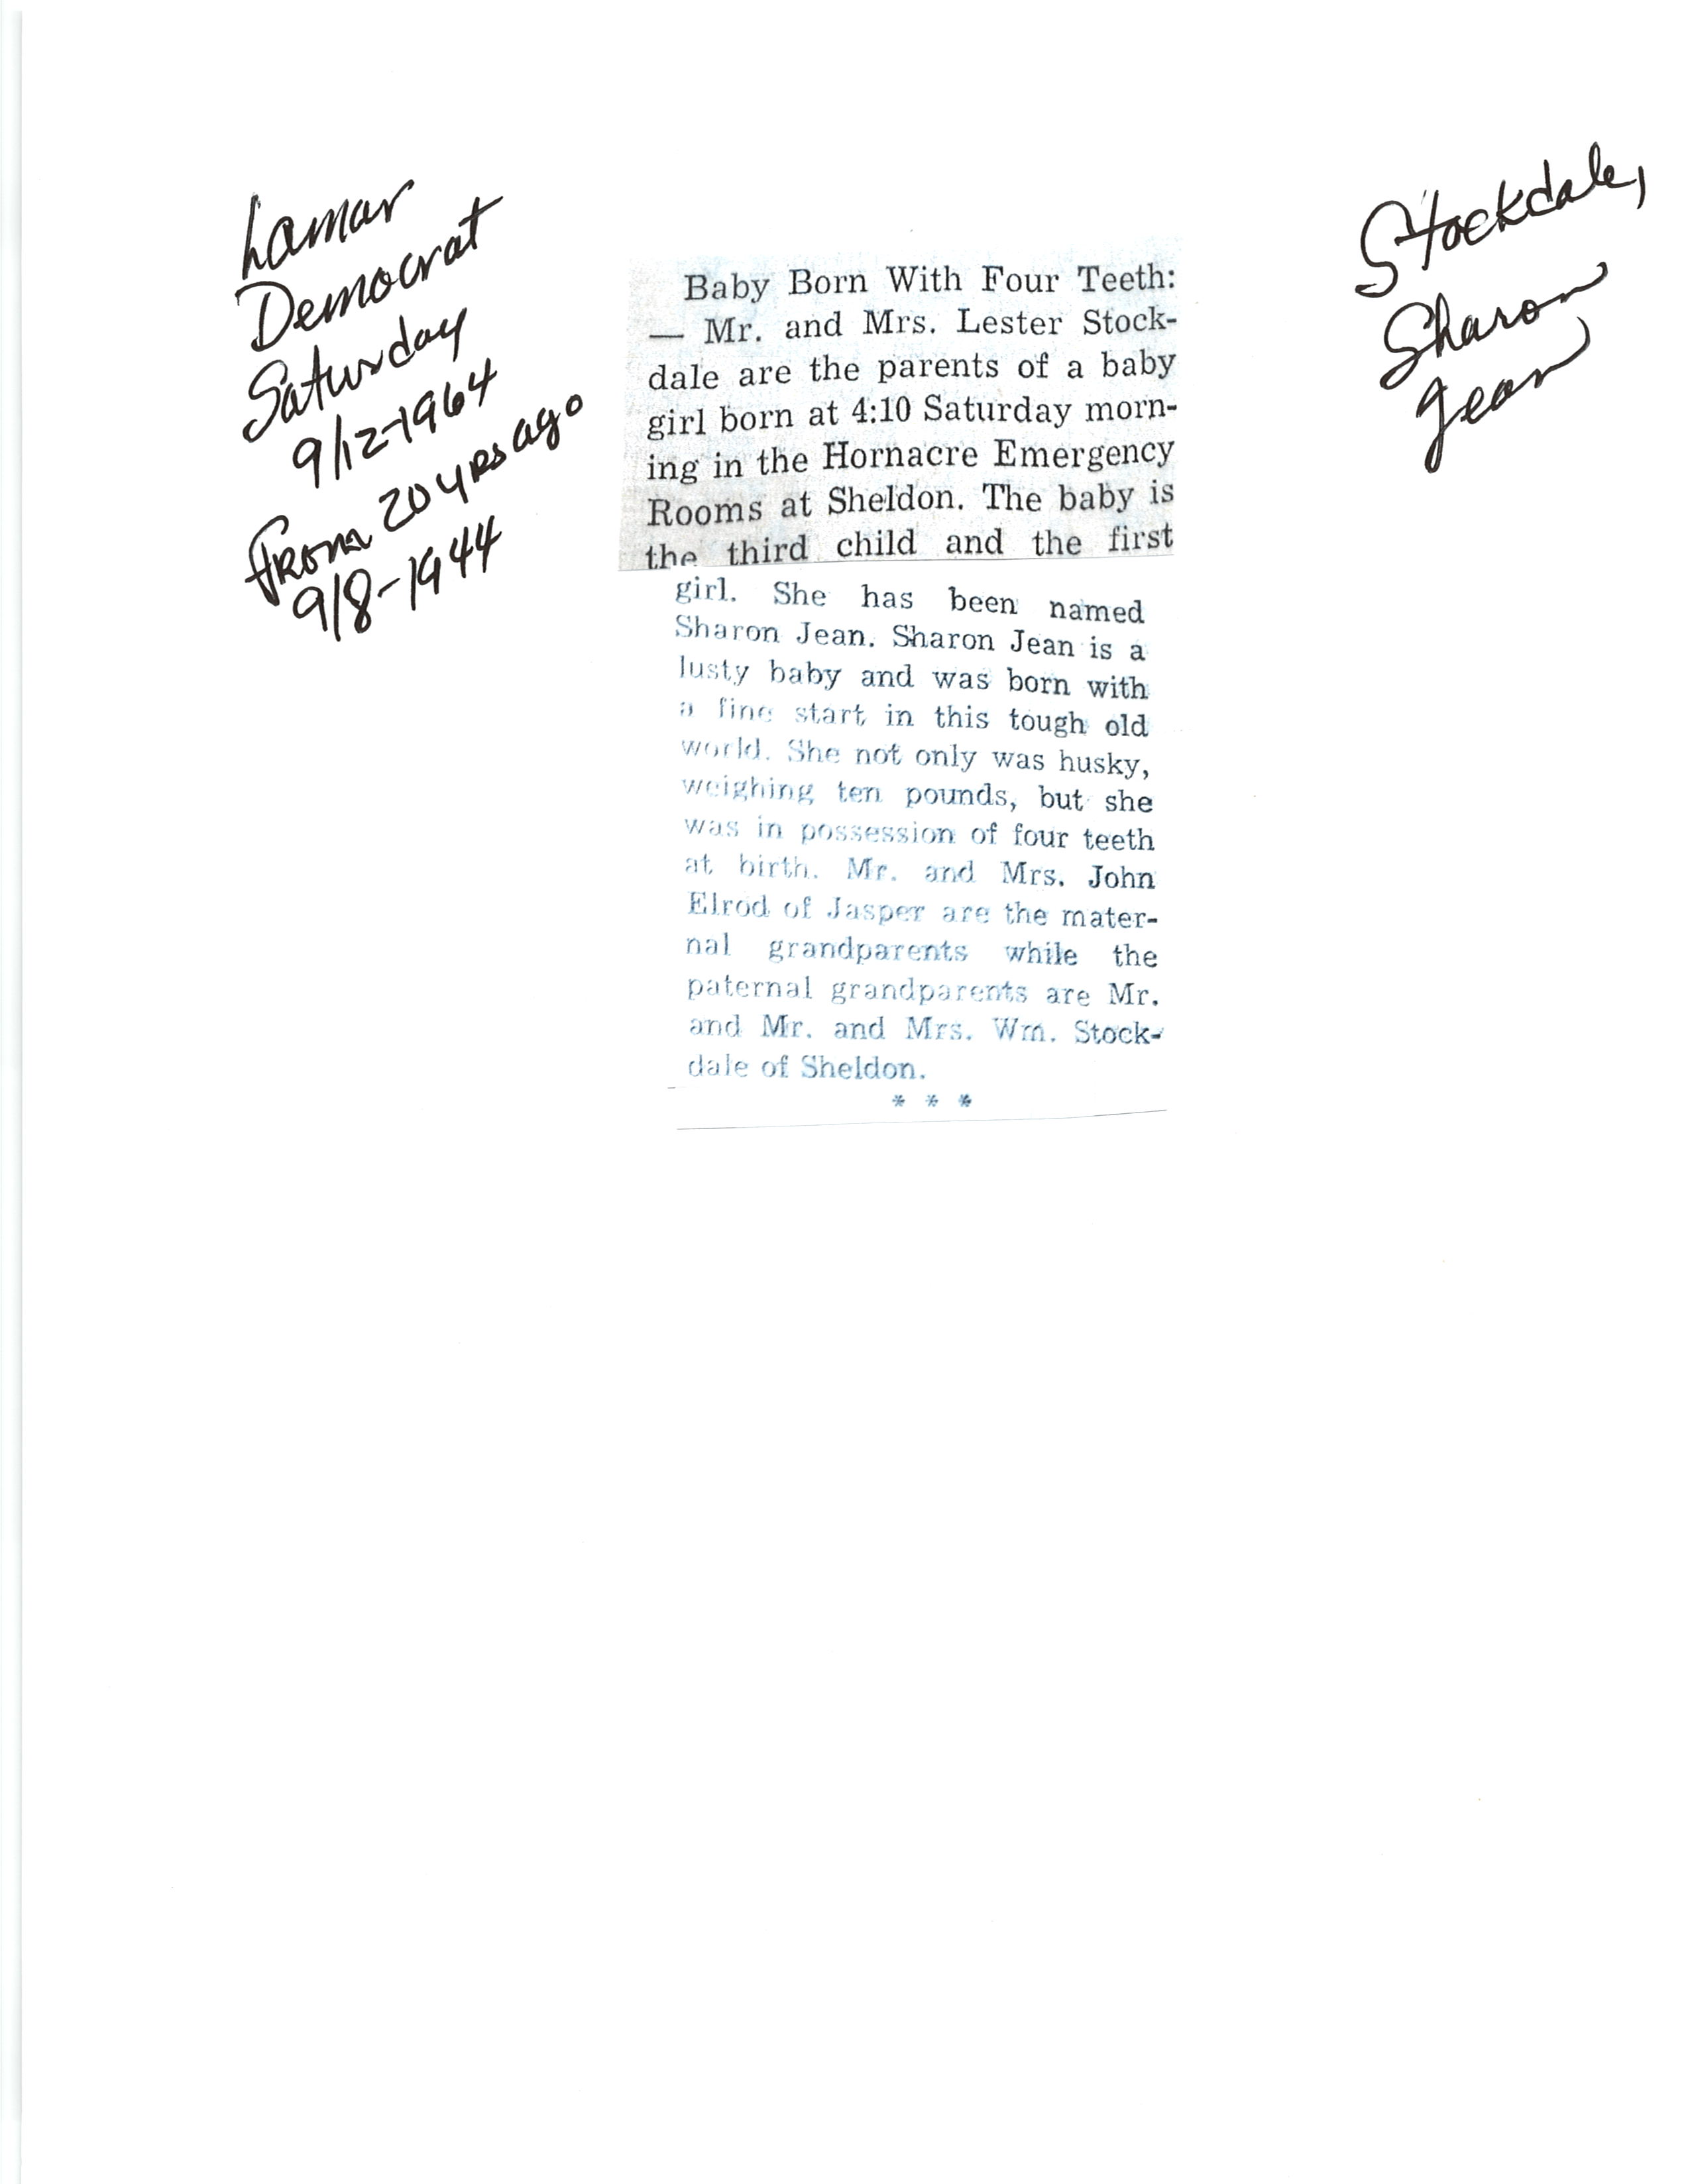 Lamar
Democrat
Saturday
9/12-1964
From 20 yrs ago
9/8-1944
Stockdale,
Sharon
Jean
Baby Born With Four Teeth:
— Mr. and Mrs. Lester Stock-
dale are the parents of a baby
girl born at 4:10 Saturday morn-
ing in the Hornacre Emergency
Rooms at Sheldon. The baby is
the third child and the first
girl. She has been named
Sharon Jean. Sharon Jean is a
lusty baby and was born with
a fine start in this tough old
world. She not only was husky,
weighing ten pounds, but she
was in possession of four teeth
at birth. Mr. and Mrs. John
Elrod of Jasper are the mater-
nal grandparents while the
paternal grandparents are Mr.
and Mr. and Mrs. Wm. Stock-
dale of Sheldon.
* * *